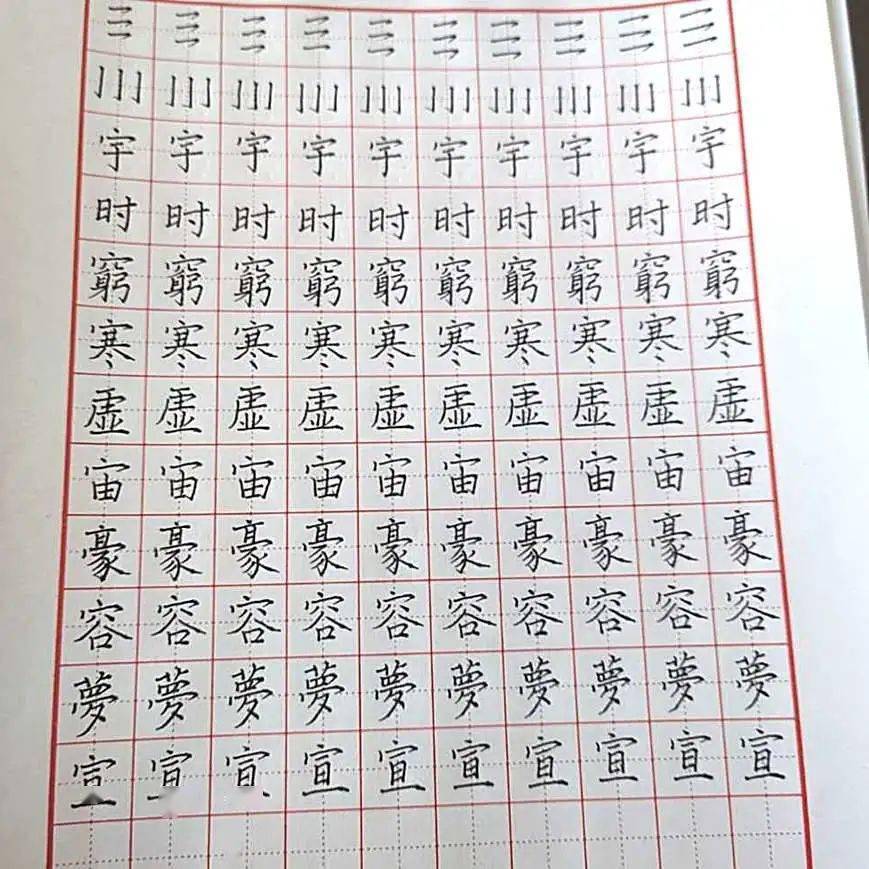 三三三三三三三三三三
川川川川川川川川川川
宇宇宇宇宇宇宇宇宇宇
时时时时时时时时时时
窮窮窮窮窮窮窮窮窮窮
寒寒寒寒寒寒寒寒寒寒
虚虚虚虚虚虚虚虚虚虚
宙宙宙宙宙宙宙宙宙宙
豪豪豪豪豪豪豪豪豪豪
容容容容容容容容容容
夢夢夢夢夢夢夢夢夢夢
宣宣宣宣宣宣宣宣宣宣